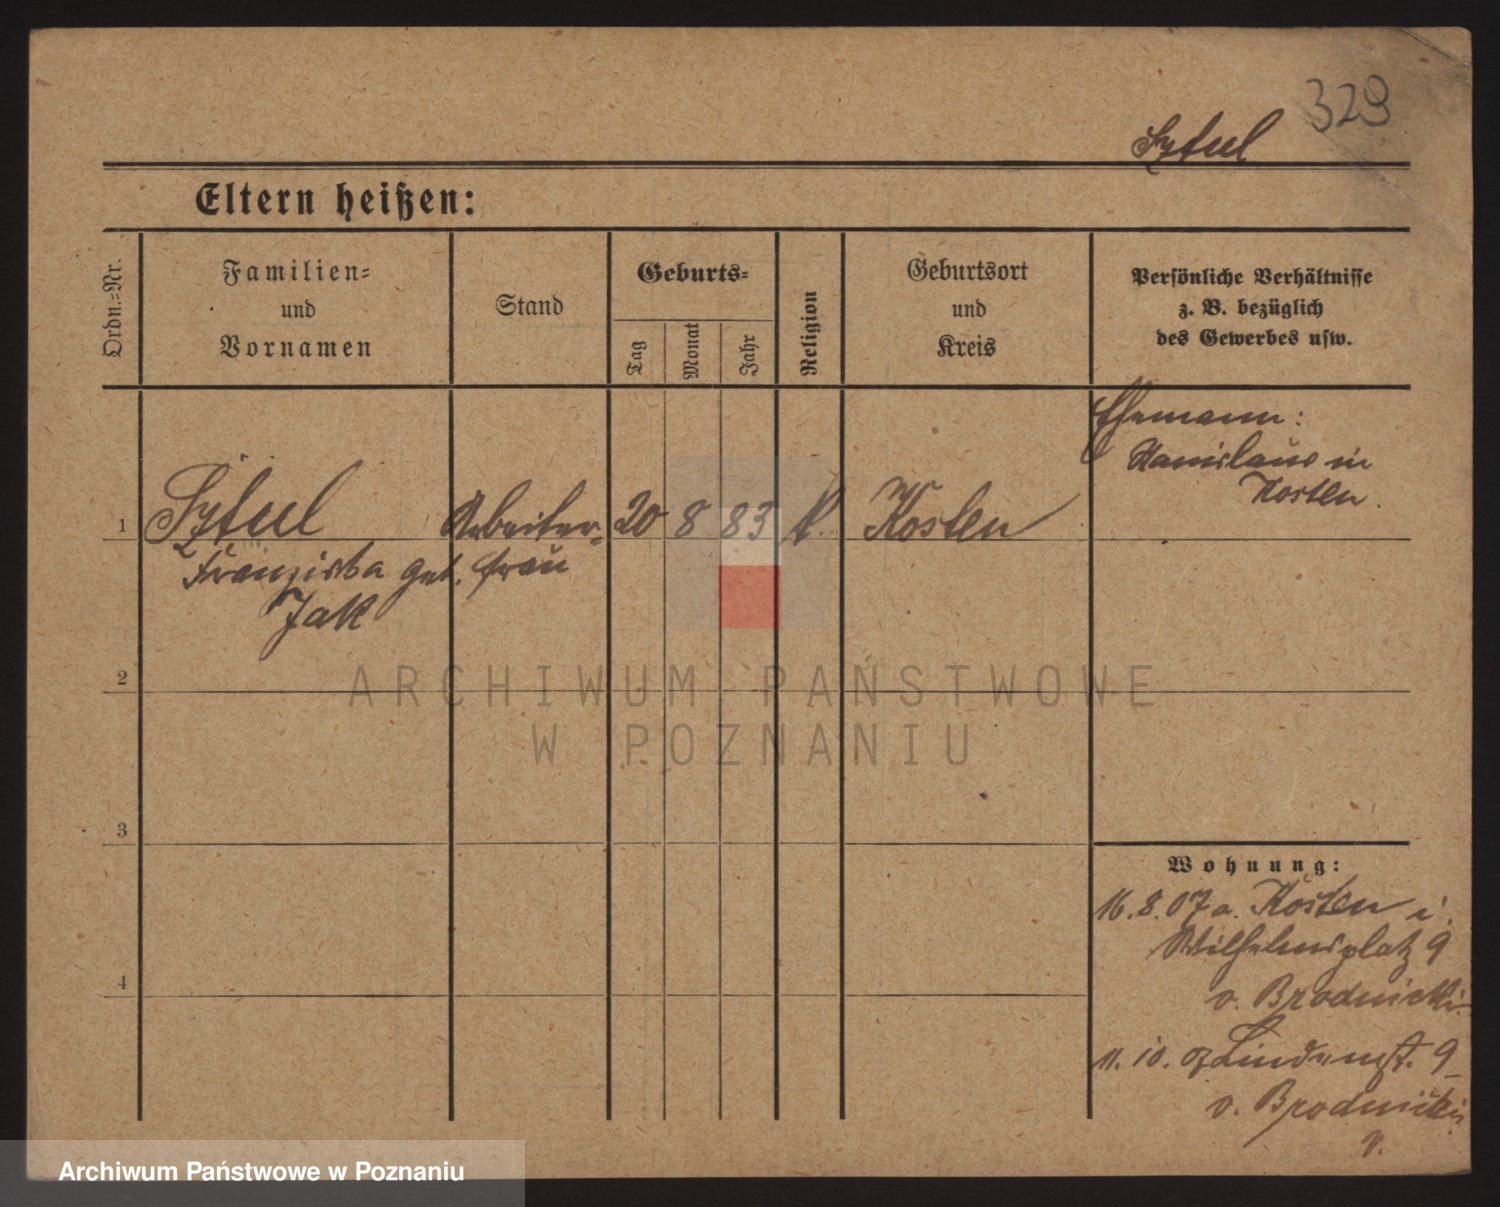 329
Sytul
Eltern heißen:
Ordn.=Nr.
Familien=
und
Vornamen
Stand
Geburts=
Tag
Monat
Jahr
Religion
Geburtsort
und
Kreis
Persönliche Verhältnisse
z. B. bezüglich
des Gewerbes usw.
Ehemann:
Stanislaus in
Kosten.
1 Sytul Arbeiter- 20 8 83 k. Kosten
Franziska geb. frau
Jak
2
3
4
Wohnung:
16.8.07 a. Kosten i.
Wilhelmsplatz 9
v. Brodnicki
11.10.07 Lindenst. 9
v. Brodnicki
ARCHIWUM PAŃSTWOWE
W POZNANIU
Archiwum Państwowe w Poznaniu